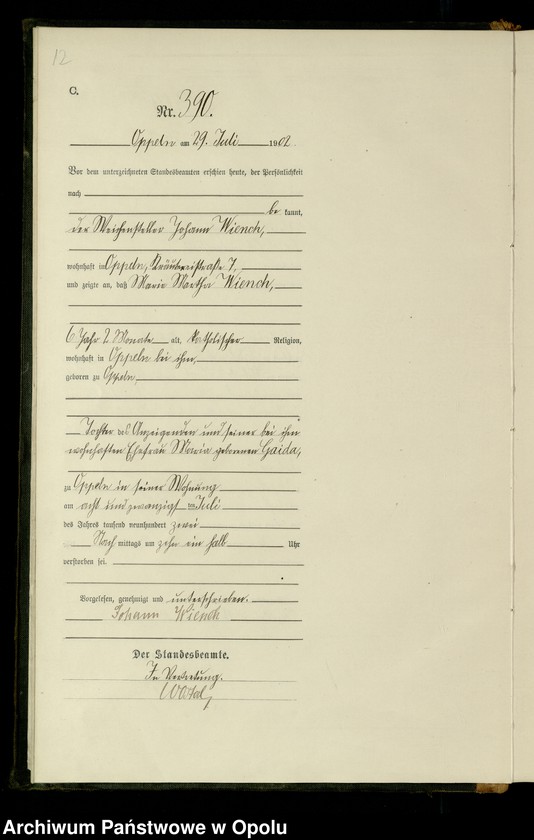 12
C.
Nr. 390.
Oppeln am 29. Juli 1902.
Vor dem unterzeichneten Standesbeamten erschien heute, der Persönlichkeit
nach
be kannt,
der Weichensteller Johann Wiench,
wohnhaft in Oppeln, 7,
und zeigte an, daß Maria Martha Wiench,
6 Jahr 2 Monate alt, katholischer Religion,
wohnhaft in Oppeln bei ihm,
geboren zu Oppeln,
Tochter des Anzeigenden und seiner bei ihm
wohnhaften Ehefrau Maria geborenen Gaida,
zu Oppeln in seiner Wohnung
am acht und zwanzigsten Juli
des Jahres tausend neunhundert zwei
Nach mittags um zehn ein halb Uhr
verstorben sei.
Vorgelesen, genehmigt und unterschrieben.
Johann Wiench
Der Standesbeamte.
In Vertretung.
Archiwum Państwowe w Opolu